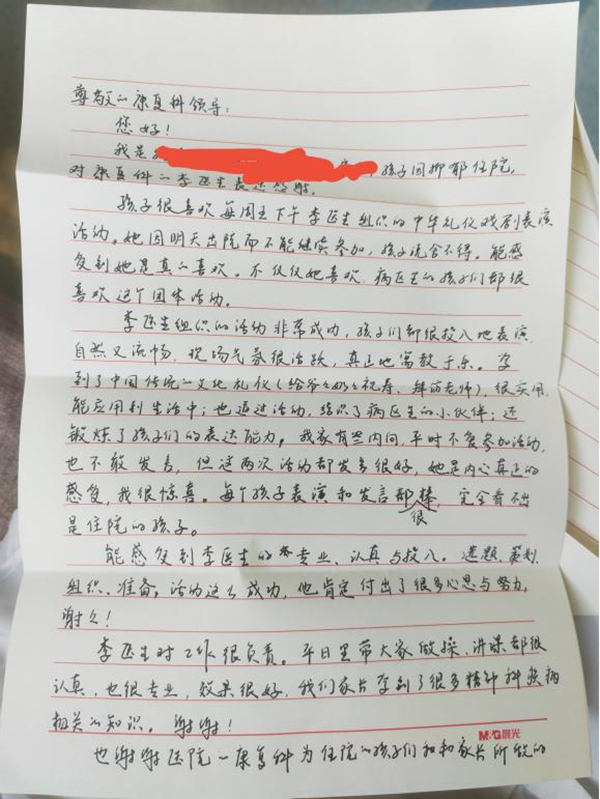 尊敬的康复科领导:
您好!
我是 孩子因抑郁住院,
对康复科的李医生表达感谢.
孩子很喜欢每周五下午李医生组织的中华礼仪戏剧表演
活动。她因明天出院而不能继续参加,孩子说舍不得。能感
受到她是真的喜欢。不仅仅她喜欢.病区里的孩子们都很
喜欢这个团体活动。
李医生组织的活动非常成功,孩子们都很投入地表演.
自然又流畅.现场气氛很活跃,真正地寓教于乐。学
到了中国传统文化礼仪(给爷爷奶奶祝寿、拜访老师),很实用.
能应用到生活中;也通过活动,结识了病区里的小伙伴;还
锻炼了孩子们的表达能力。我家有些内向.平时不爱参加活动,
也不敢发言,但这两次活动都发言很好,她是内心真正的
感受,我很惊喜。每个孩子表演和发言都很棒,完全看不出
是住院的孩子。
能感受到李医生的专业、认真与投入。选题、策划
组织、准备。活动这么成功,他肯定付出了很多心思与努力,
谢谢!
李医生对工作很负责。平日里带大家做操、讲课都很
认真,也很专业,效果很好.我们家长学到了很多精神科疾病
相关的知识。谢谢!
M&G晨光
也谢谢医院一康复科为住院的孩子们和和家长所做的